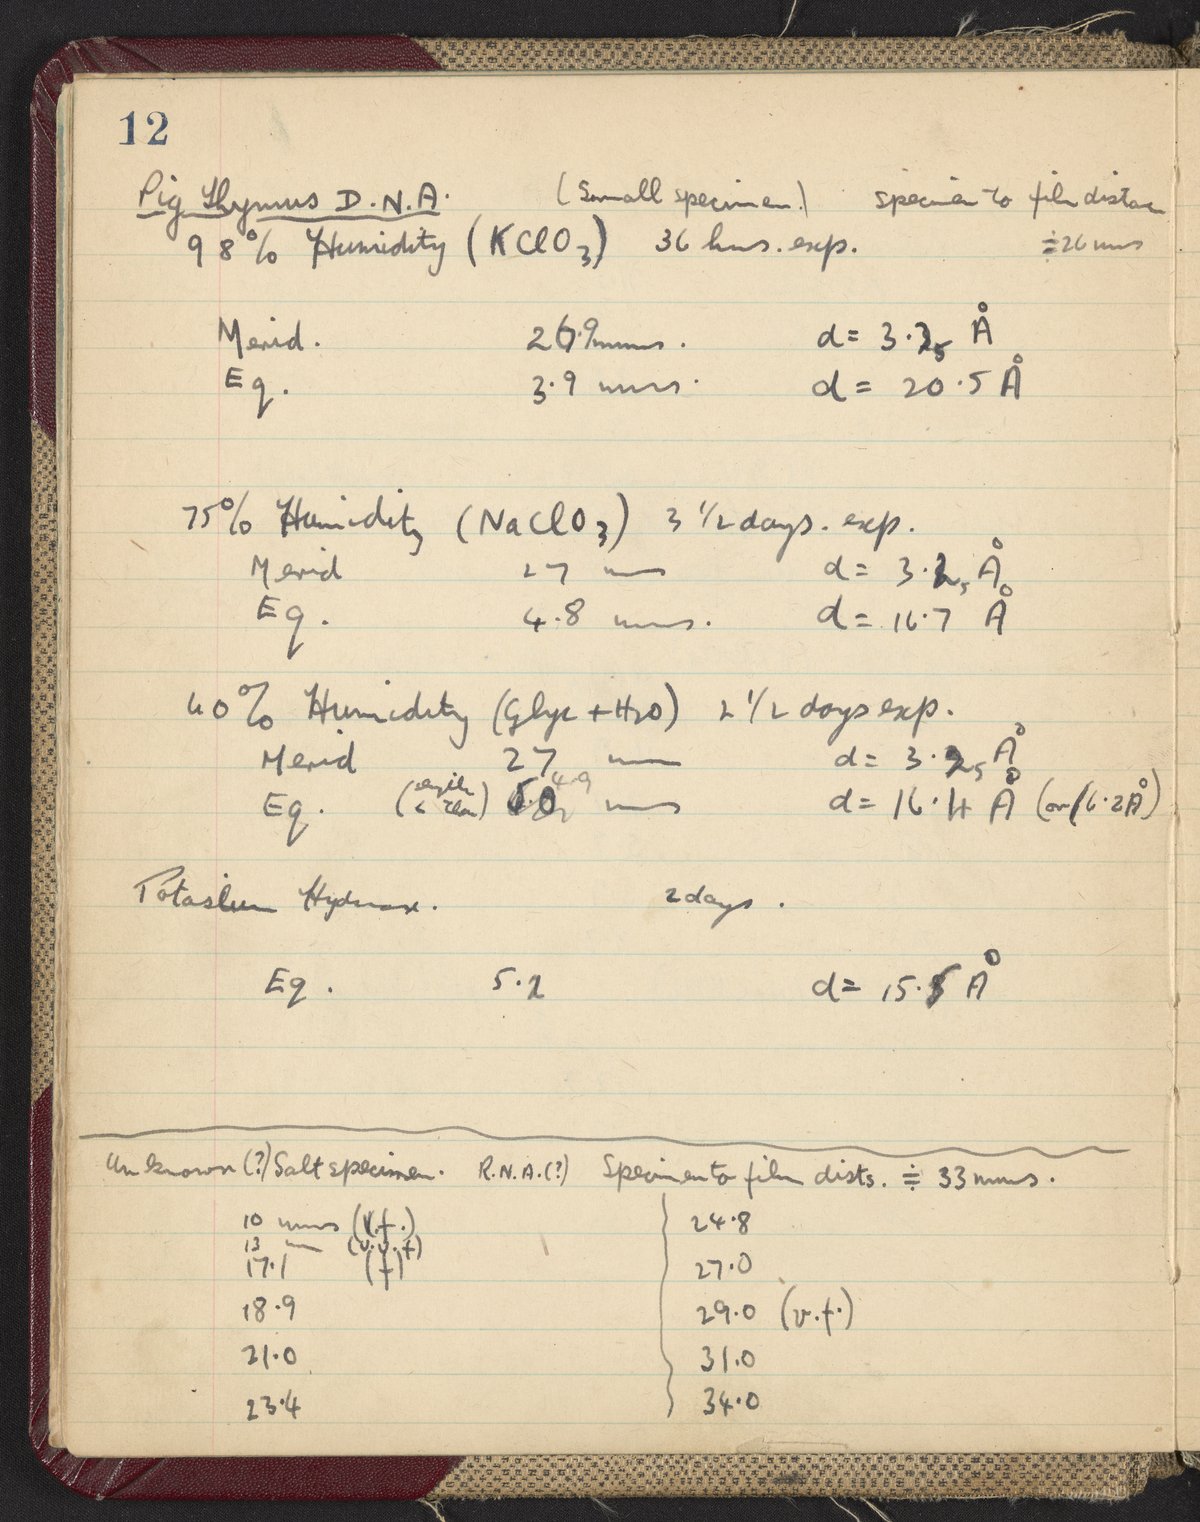 12
Pig Thymus D.N.A. (Small specimen.) specimen to film distance
98% Humidity (KClO3) 36 hrs. exp. ≑26 mms
Merid. 26.9 mms. d = 3.25 Å
Eq. 3.9 mms. d = 20.5 Å
75% Humidity (NaClO3) 3 1/2 days. exp.
Merid 27 mm d = 3.25 Å
Eq. 4.8 mms. d = 16.7 Å
40% Humidity (Glyc + H2O) 2 1/2 days exp.
Merid 27 mm d = 3.25 Å
Eq. 5.0 4.9 mms d = 16.4 Å (or 16.2 Å)
Potasium Hydrox. 2 days.
Eq. 5.2 d = 15.5 Å
Unknown (?) Salt specimen. R.N.A. (?) Specimen to film dists. ≑ 33 mms.
10 mms (v.f.) 24.8
13 m (v.v.f)
17.1 (f) 27.0
18.9 29.0 (v.f.)
21.0 31.0
23.4 34.0